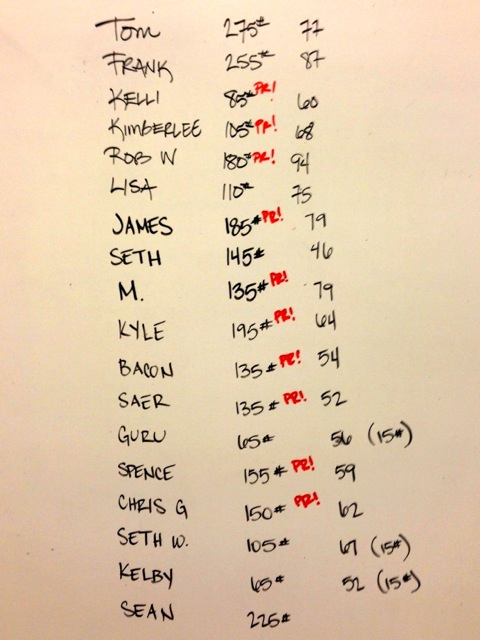 Tom 275# 77
FRANK 255# 87
KELLI 85# PR! 60
KIMBERLEE 105# PR! 68
ROB W 180# PR! 94
LISA 110# 75
JAMES 185# PR! 79
SETH 145# 46
M. 135# PR! 79
KYLE 195# PR! 64
BACON 135# PR! 54
SAER 135# PR! 52
GURU 65# 56 (15#)
SPENCE 155# PR! 59
CHRIS G 150# PR! 62
SETH W. 105# 67 (15#)
KELBY 65# 52 (15#)
SEAN 225#